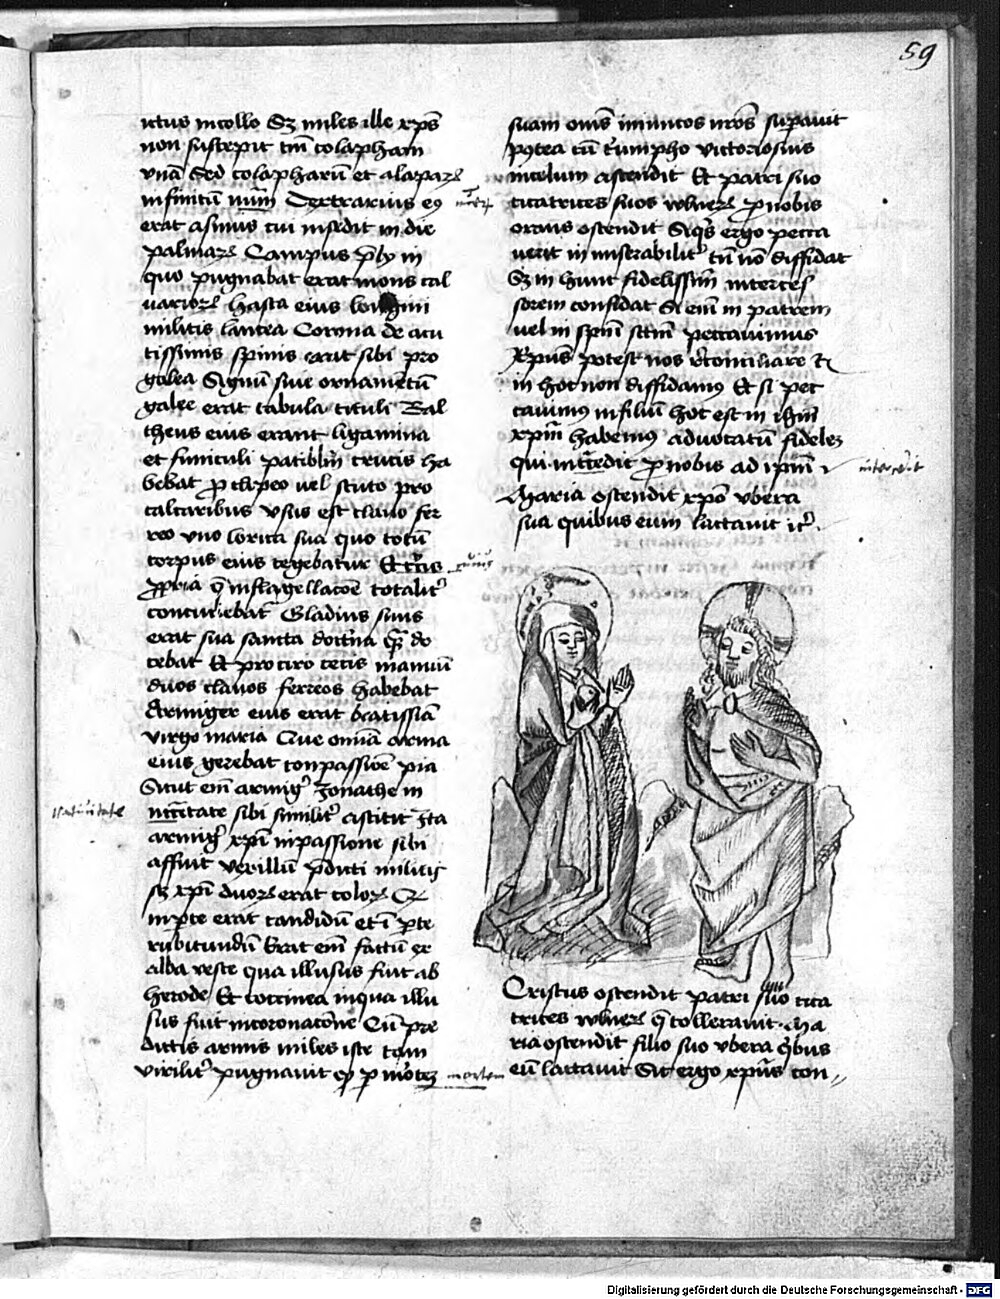 59
ictus in collo Sz miles ille xp̄s
non suscepit tm̄ colapham
vnā Sed colapharū et alapaꝝ
infinitū num̄ Dextrarius eꝯ
erat asinus cui insedit in die
palmaꝝ Campus p̄ly in
quo pugnabat erat mons cal
uarioꝝ hasta eius longini
militis lancea Corona de acu
tissimis spinis erat sibi pro
galea Signū siue ornamētū
galee erat tabula tituli Bal
theus eius erant ligamina
et funiculi patiblm̄ crucis ha
bebat ꝓ clipeo uel scuto pro
calcaribus vsus est clauo fer
reo vno lorica sua quo totū
corpus eius tegebatur Et
ꝓpria q̄ in flagellacōe totalit̉
concuciebat Gladius suus
erat sua sancta doctͥna qͣ do
cebat Et pro ciro tecis manuū
duos clauos ferreos habebat
Armiger eius erat beatissīa
virgo maria Que omīa arma
eius gerebat conpassiōe pia
Sicut em̄ armig̉ Jonathe in
sibi similit̉ astitit Ita
armig̉ xpī in passione sibi
affuit verillū p̄dicti militis
sz xpī duoꝝ erat coloꝝ Qꝛ
in pͣte erat candidū et ī pͣte
rubicundū Erat em̄ factū ex
alba veste qua illusus fuit ab
herode Et coccinea in qua illu
sus fuit in coronacōne Cū pre
dictis armis miles iste tam
virilit̉ pugnauit qͥ p
mortem
natiuitate
suam omīs inimicos nr̄os supauit
postea cū tͥumpho victoriosius
in celum ascendit Et patri suo
cicatrices suos vulneꝝ ꝓ nobis
orans ostendit Siqͥs ergo pecca
uerit in miserabilit̉ tn̄ nō diffidat
Sz in hunc fidelissim̄ interces
sorem confidat Si em̄ in patrem
uel in spm̄ sctm̄ peccauimus
Xp̄us potest nos rͤconciliare Et
in hoc non diffidamꝯ Et si pec
cauimꝯ in filiū hoc est in ihm̄
xpm̄ habemꝯ aduocatū fidelez
qui intͨedit ꝓ nobis ad ipm̄
intercedit
Maria ostendit xpō vbera
sua quibus eum lactauit ic̉
Cristus ostendit patri suo cica
trices vulneꝝ q̄ tollerauit Ma
ria ostendit filio suo vbera qͥbus
eū lactauit Sic ergo xpūs con
Digitalisierung gefördert durch die Deutsche Forschungsgemeinschaft - DFG